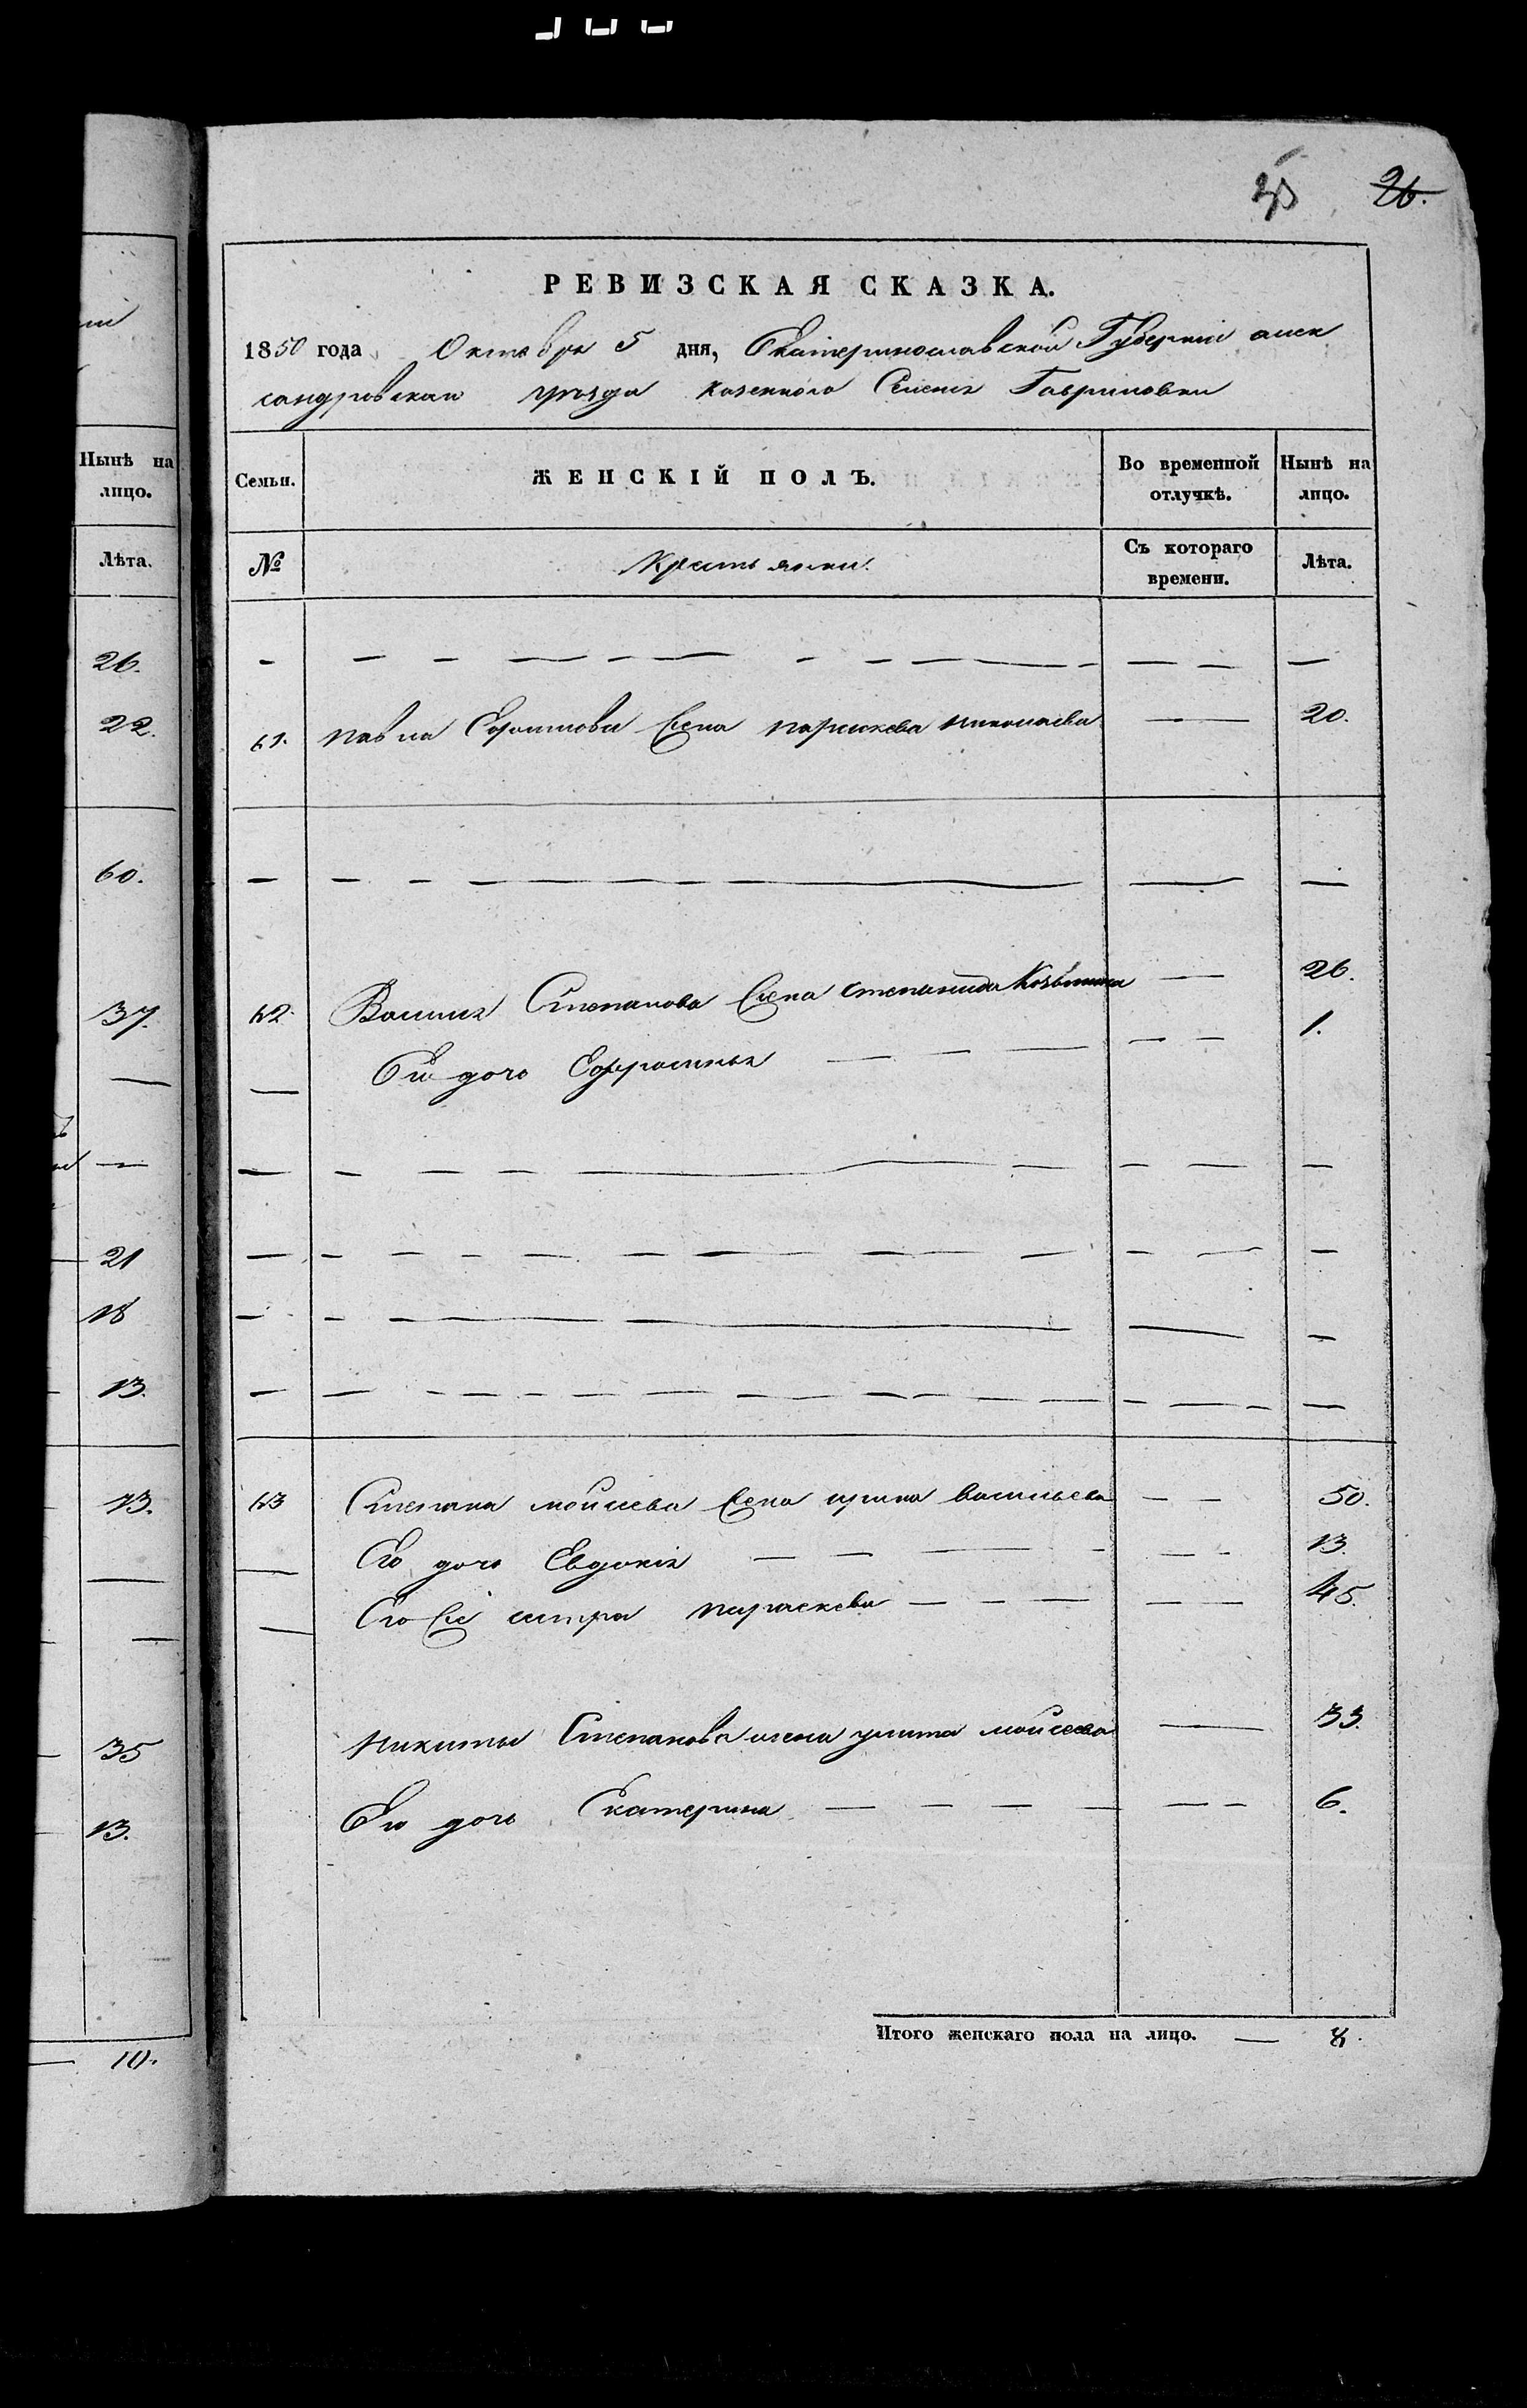 25 26.
РЕВИЗСКАЯ СКАЗКА.
1850 года Октября 5 дня, Екатеринославской Губерніи алек
сандровскаго уезда казенного Селенія Гавриловки
Нынѣ на лицо.
Семьи. ЖЕНСКІЙ ПОЛЪ. Во временной отлучкѣ. Нынѣ на лицо.
Лѣта.
№ Крестьянки. Съ котораго времени. Лѣта.
26.
— — — — —
22.
61. Павла жена параскева николаева — 20.
60.
— — — — —
37.
62 Василия Степанова жена степанида Козьмина — 26.
— Его дочь Ефросинья — — — 1.
— — — — —
21
— — — — —
18
— — — — —
13.
— — — — —
13.
63 Степана моисеева жена ирина васильева — — 50.
— Его дочь Евдокія — — — 13.
— Его же сестра параскева — — — 45.
35
Никиты Степанова жена улита моисеева — 33.
13.
Его дочь Екатерина — — — 6.
Итого женскаго пола на лицо. — 8.
10.